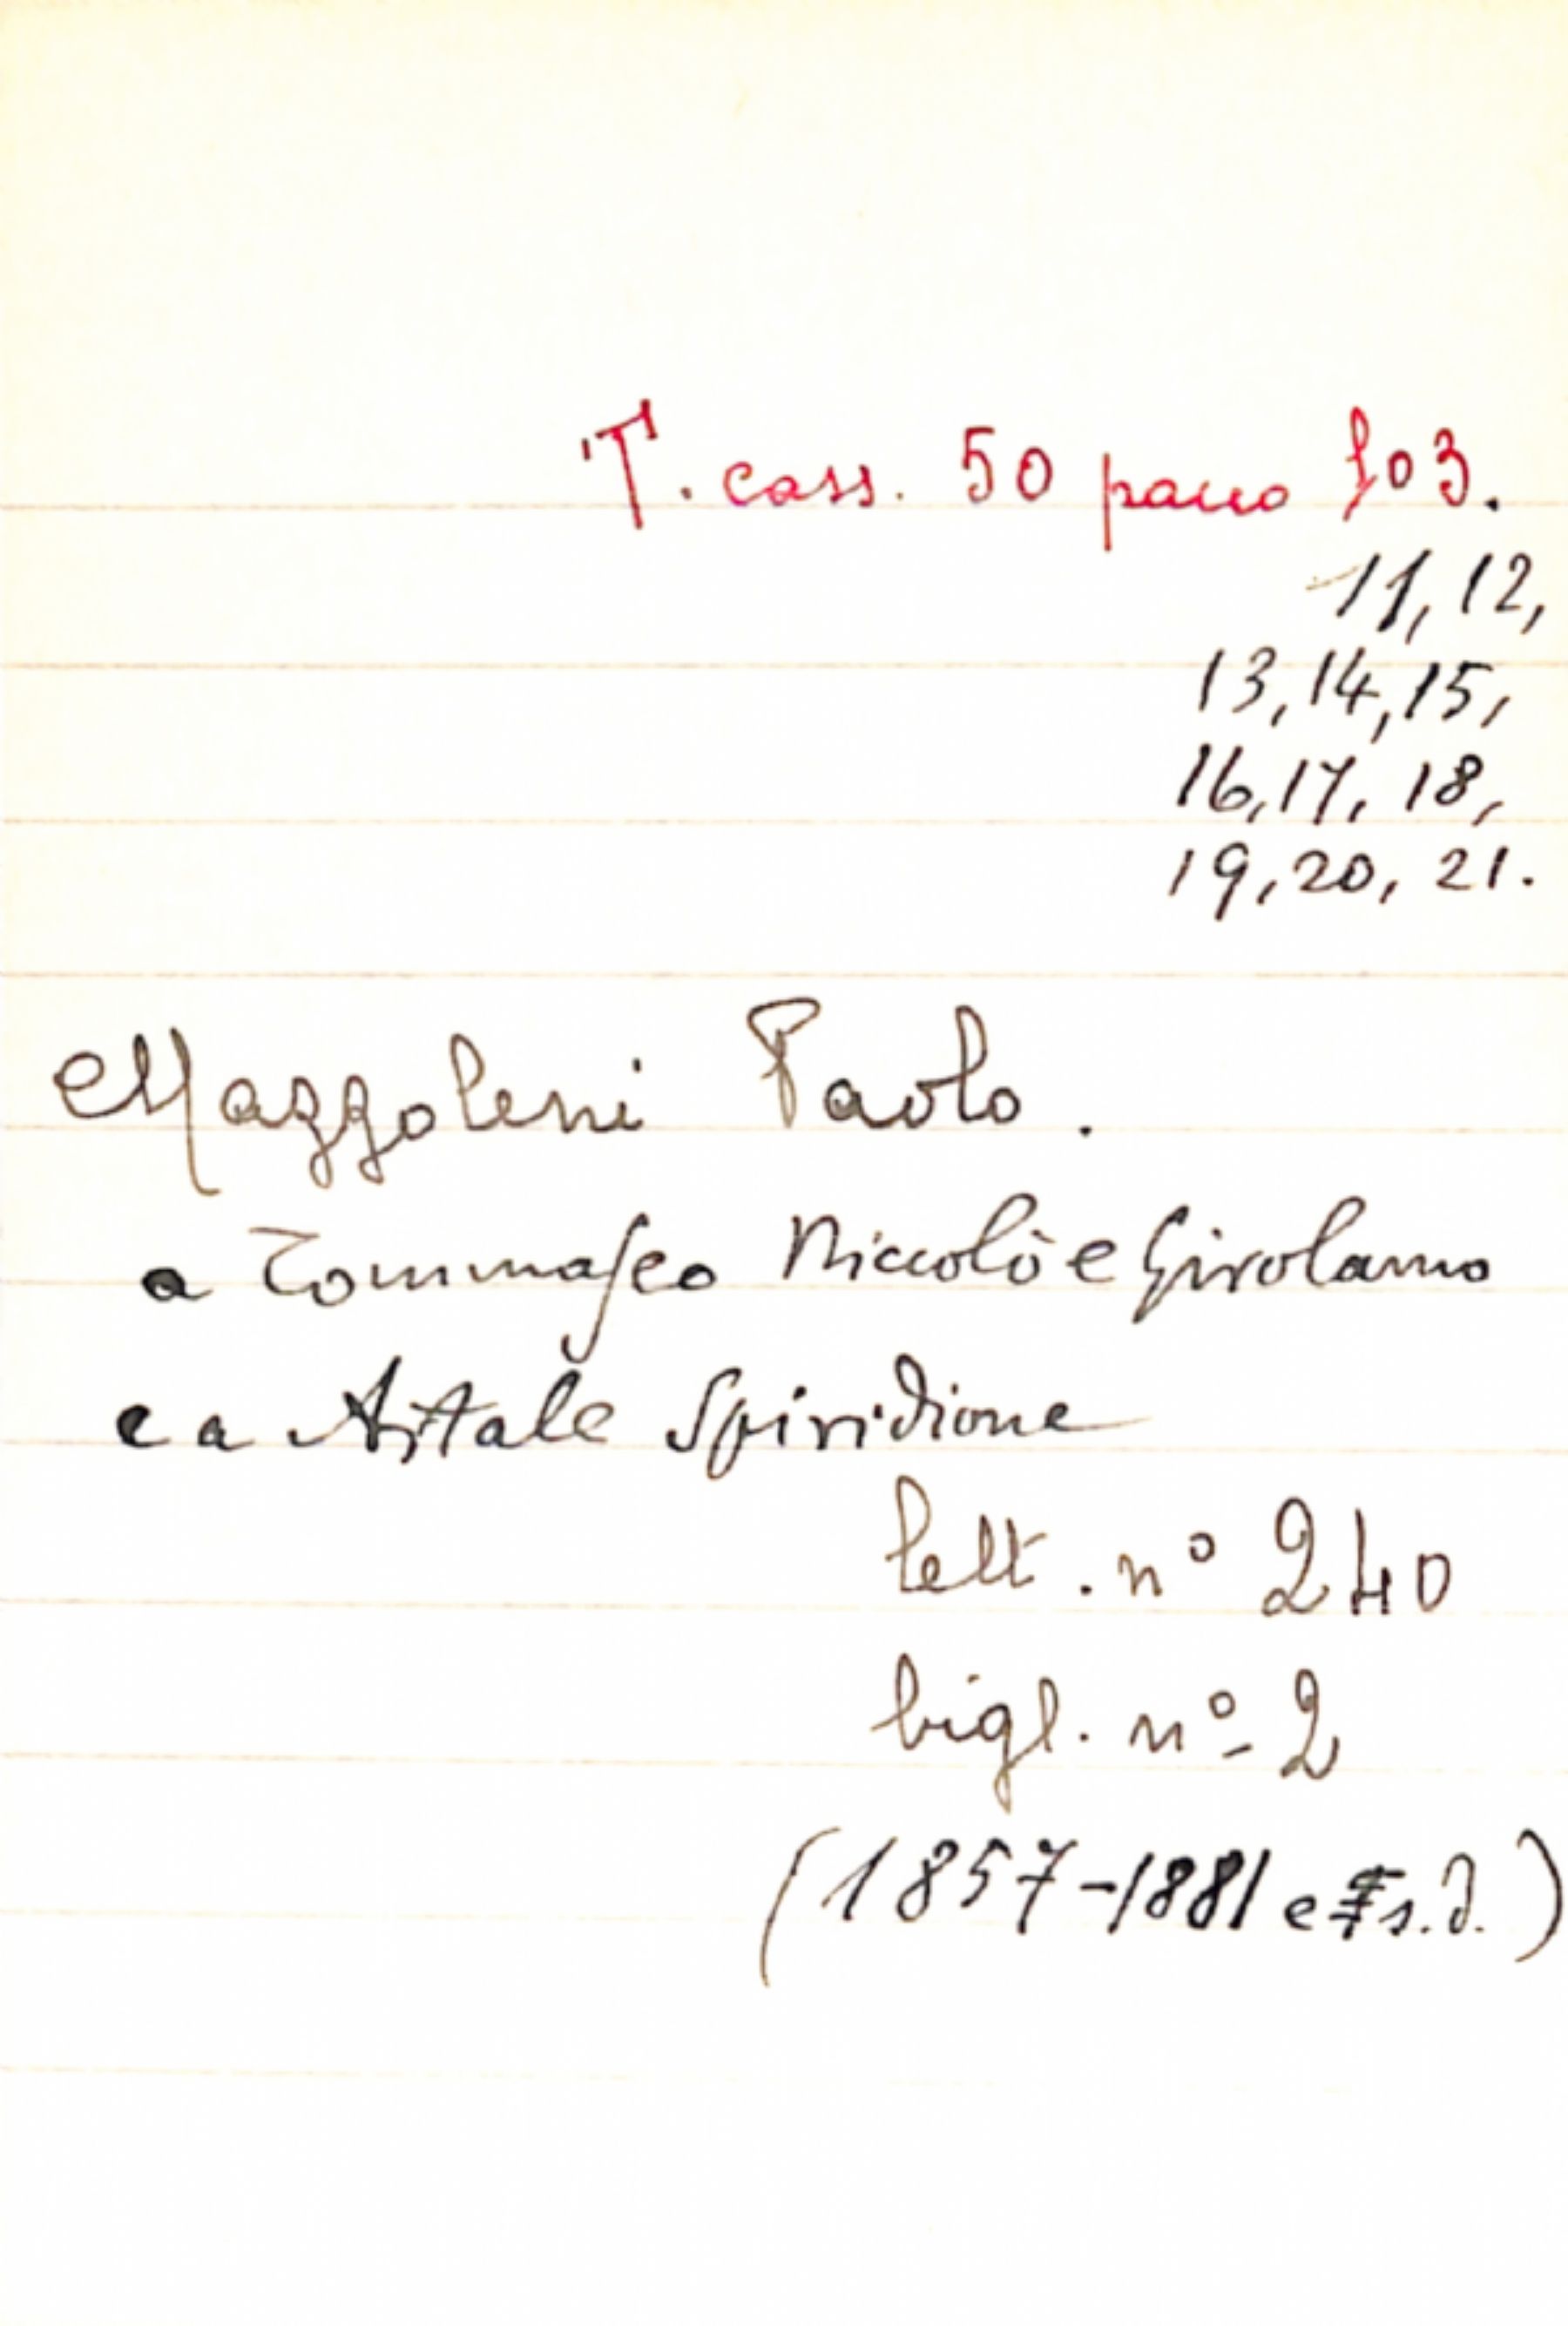 T. cass. 50 pacco 103.
11, 12,
13, 14, 15,
16, 17, 18,
19, 20, 21.
Mazzoleni Paolo.
a Tommaseo Niccolò e Girolamo
e a Artale Spiridione
lett. nº 240
bigl. nº 2
(1857-1881 e s.d.)